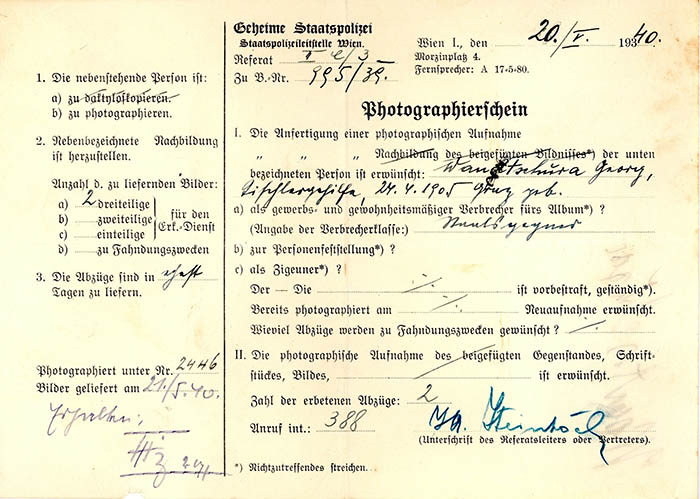 1. Die nebenstehende Person ist:
a) zu daktyloskopieren.
b) zu photographieren.
2. Nebenbezeichnete Nachbildung
ist herzustellen.
Anzahl d. zu liefernden Bilder:
a) 2 dreiteilige
b) zweiteilige
c) einteilige
für den
Erk.-Dienst
d) zu Fahndungszwecken
3. Die Abzüge sind in
Tagen zu liefern.
Photographiert unter Nr. 2446
Bilder geliefert am 21./5.40.
Erhalten:
Geheime Staatspolizei
Staatspolizeileitstelle Wien.
Referat
Zu B.-Nr. 995/39.
Wien I., den 20./V. 1940.
Morzinplatz 4.
Fernsprecher: A 17-5-80.
Photographierschein
I. Die Anfertigung einer photographischen Aufnahme
" " " Nachbildung des beigefügten Bildnisses*) der unten
bezeichneten Person ist erwünscht: Georg,
Tischlergehilfe, 24.4.1905 Graz geb.
a) als gewerbs- und gewohnheitsmäßiger Verbrecher fürs Album*) ?
(Angabe der Verbrecherklasse:) Staatsgegner
b) zur Personenfeststellung*) ?
c) als Zigeuner*) ?
Der — Die ·/. ist vorbestraft, geständig*).
Bereits photographiert am ·/. Neuaufnahme erwünscht.
Wieviel Abzüge werden zu Fahndungszwecken gewünscht ? ·/.
II. Die photographische Aufnahme des beigefügten Gegenstandes, Schrift-
stückes, Bildes, ist erwünscht.
Zahl der erbetenen Abzüge: 2
Anruf int.: 388
(Unterschrift des Referatsleiters oder Vertreters).
*) Nichtzutreffendes streichen.